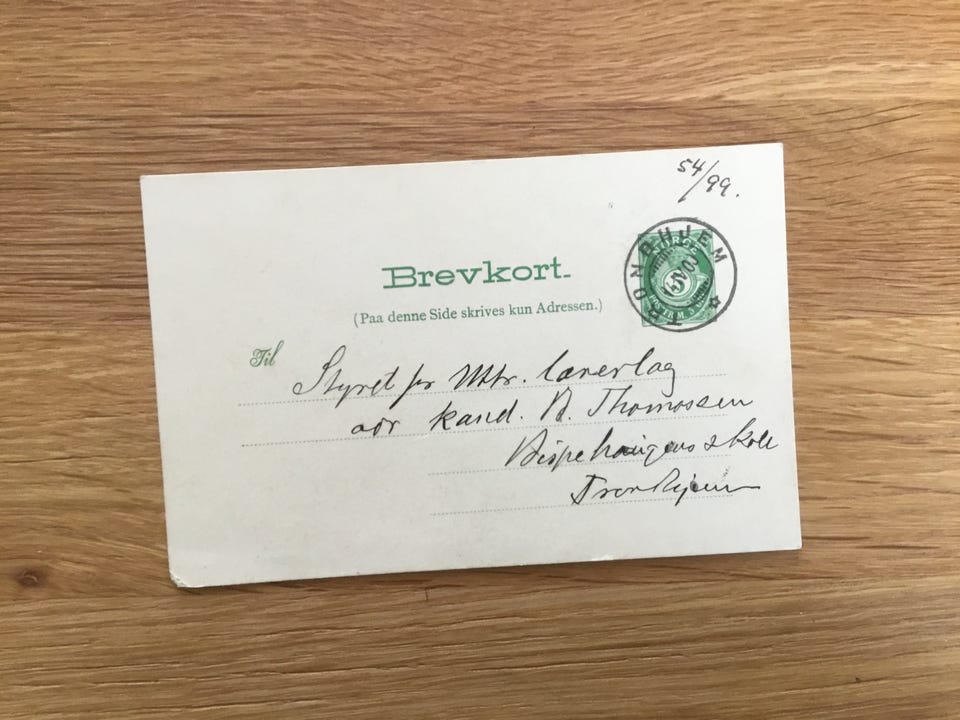 54/99.
TRONDHJEM
NORGE
Brevkort.
(Paa denne Side skrives kun Adressen.)
Til
Styret for lærerlag
adr kand. Thomassen
Bispehaugens skole
Trondhjem